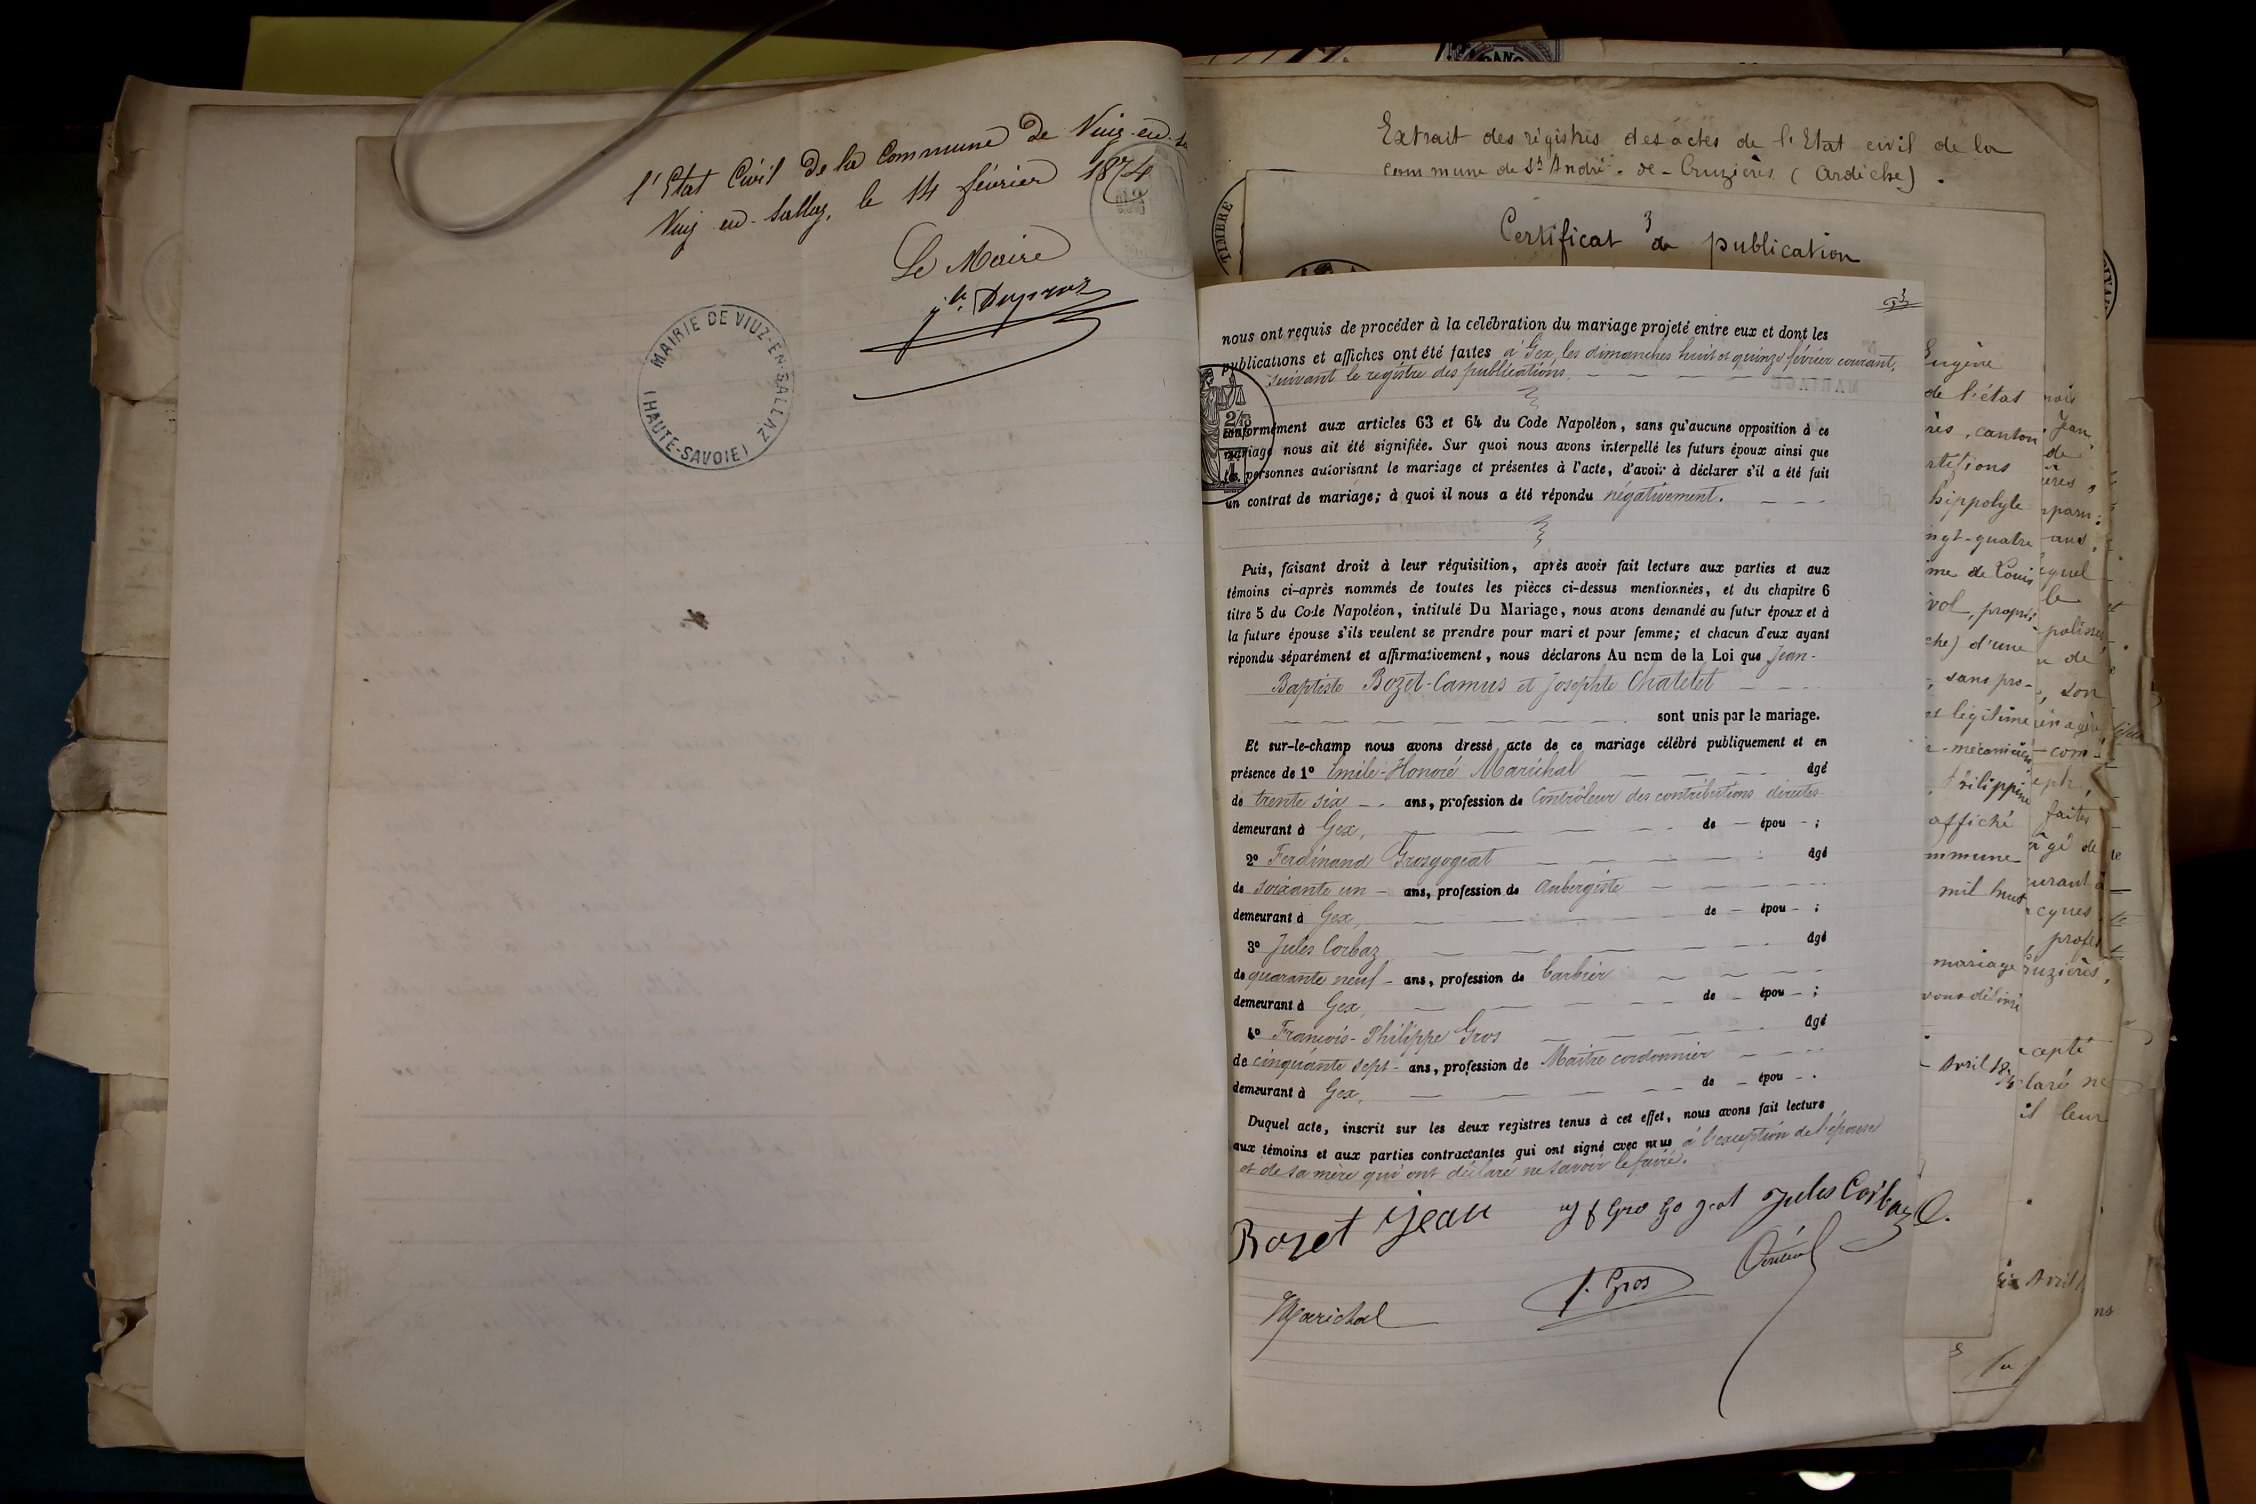 l'Etat Civil de la Commune de Viuz-en-Sa
Viuz en-Sallaz, le 14 février 1874
Le Maire
MAIRIE DE VIUZ-EN-SALLAZ
(HAUTE-SAVOIE)
Extrait des régistres des actes de l'Etat civil de la
commune de St André-de-Cruzières (Ardèche).
TIMBRE
3
Certificat de publication
nous ont requis de procéder à la célébration du mariage projeté entre eux et dont les
publications et affiches ont été faites à Gex, les dimanches huit et quinze février courant,
suivant le registre des publications.
conformément aux articles 63 et 64 du Code Napoléon, sans qu'aucune opposition à ce
mariage nous ait été signifiée. Sur quoi nous avons interpellé les futurs époux ainsi que
les personnes autorisant le mariage et présentes à l'acte, d'avoir à déclarer s'il a été fait
un contrat de mariage; à quoi il nous a été répondu négativement.
Puis, faisant droit à leur réquisition, après avoir fait lecture aux parties et aux
témoins ci-après nommés de toutes les pièces ci-dessus mentionnées, et du chapitre 6
titre 5 du Code Napoléon, intitulé Du Mariage, nous avons demandé au futur époux et à
la future épouse s'ils veulent se prendre pour mari et pour femme; et chacun d'eux ayant
répondu séparément et affirmativement, nous déclarons Au nom de la Loi que Jean-
Baptiste Bozet-Camus et Josephte Chatelet
sont unis par le mariage.
Et sur-le-champ nous avons dressé acte de ce mariage célébré publiquement et en
présence de 1° Emile-Honoré Maréchal âgé
de trente six ans, profession de Contrôleur des contributions directes
demeurant à Gex, de - épou - ;
2° Ferdinand Grosgogeat âgé
de soixante un - ans, profession de Aubergiste
demeurant à Gex, de - épou - ;
3° Jules Corbaz âgé
de quarante neuf - ans, profession de barbier
demeurant à Gex, de - épou - ;
4° François-Philippe Gros âgé
de cinquante sept - ans, profession de Maître cordonnier
demeurant à Gex, de - épou - .
Duquel acte, inscrit sur les deux registres tenus à cet effet, nous avons fait lecture
aux témoins et aux parties contractantes qui ont signé avec nous à l'exception de l'épouse
et de sa mère qui ont déclaré ne savoir le faire.
Bozet jean
Jules Corbaz
f. Gros
Marechal
Eugène
de l'état
canton
hippolyte
ingt-quatre
me de Louis
che) d'une
sans pro-
légitime
mécanicien
Philippine
affiché
mmune
mil huit
mariage
Avril 18
Jean,
de
ans,
le
de
son
com-
faites
âgé de
profes
leur